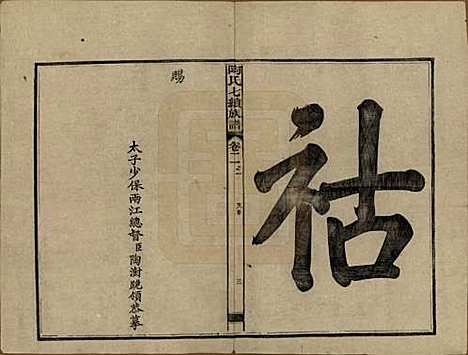 祜
陶氏七續族譜 卷二之一 三
賜
太子少保兩江總督臣陶澍跪領恭摹